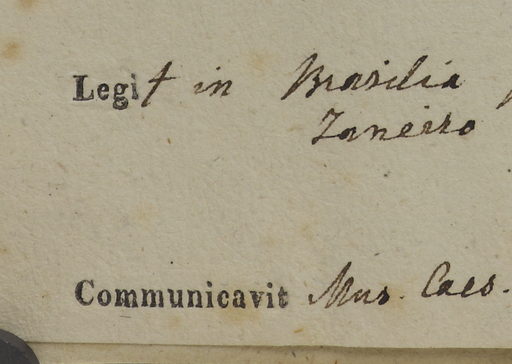 Legit in Brasilia
Janeiro
Communicavit Mus. Caes.